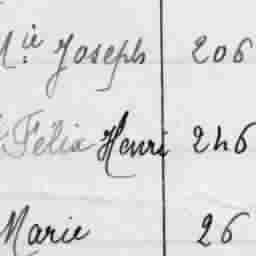 Mie Joseph 206
Félix Henri 246
Marie 26